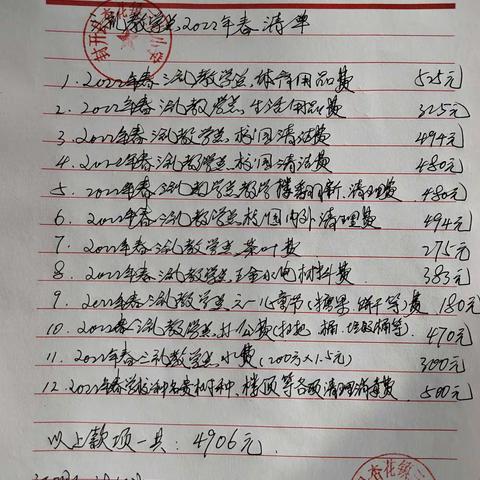 礼教学点2022年春清单
1. 2022年春三礼教学点体育用品费 525元
2. 2022年春三礼教学点生活用品费 325元
3. 2022年春三礼教学点校园清洁费 494元
4. 2022年春三礼教学点校园清洁费 480元
5. 2022年春三礼教学点教学楼翻新、清理费 480元
6. 2022年春三礼教学点校园内外清理费 494元
7. 2022年春三礼教学点茶叶费 275元
8. 2022年春三礼教学点五金水电材料费 383元
9. 2022年春三礼教学点六一儿童节(糖果、饼干等)费 180元
10. 2022春三礼教学点办公费(扫把、桶、垃圾桶等) 470元
11. 2022年春三礼教学点水费(200方×1.5元) 300元
12. 2022年春学校种名贵树种、楼顶等各项清理消毒费 500元
以上款项一共: 4906元.